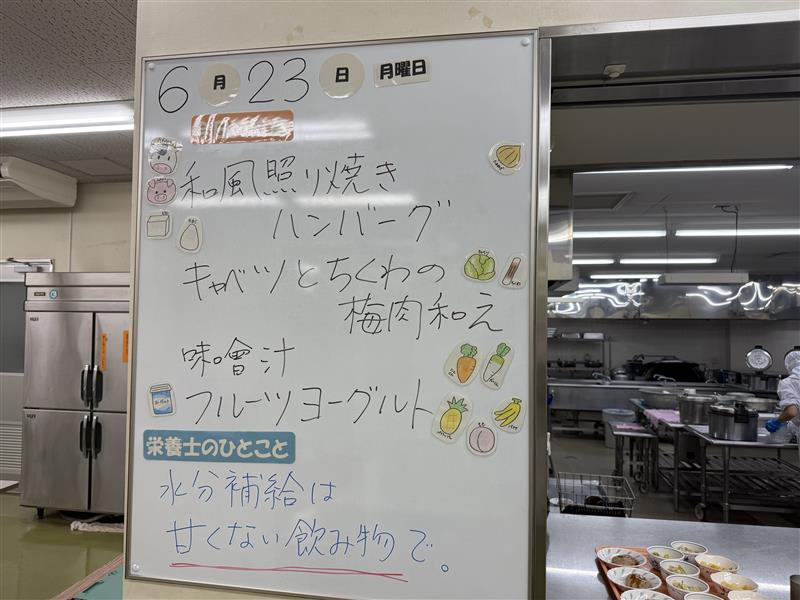 6月23日 月曜日
和風照り焼き
ハンバーグ
キャベツとちくわの
梅肉和え
味噌汁
フルーツヨーグルト
栄養士のひとこと
水分補給は
甘くない飲み物で。